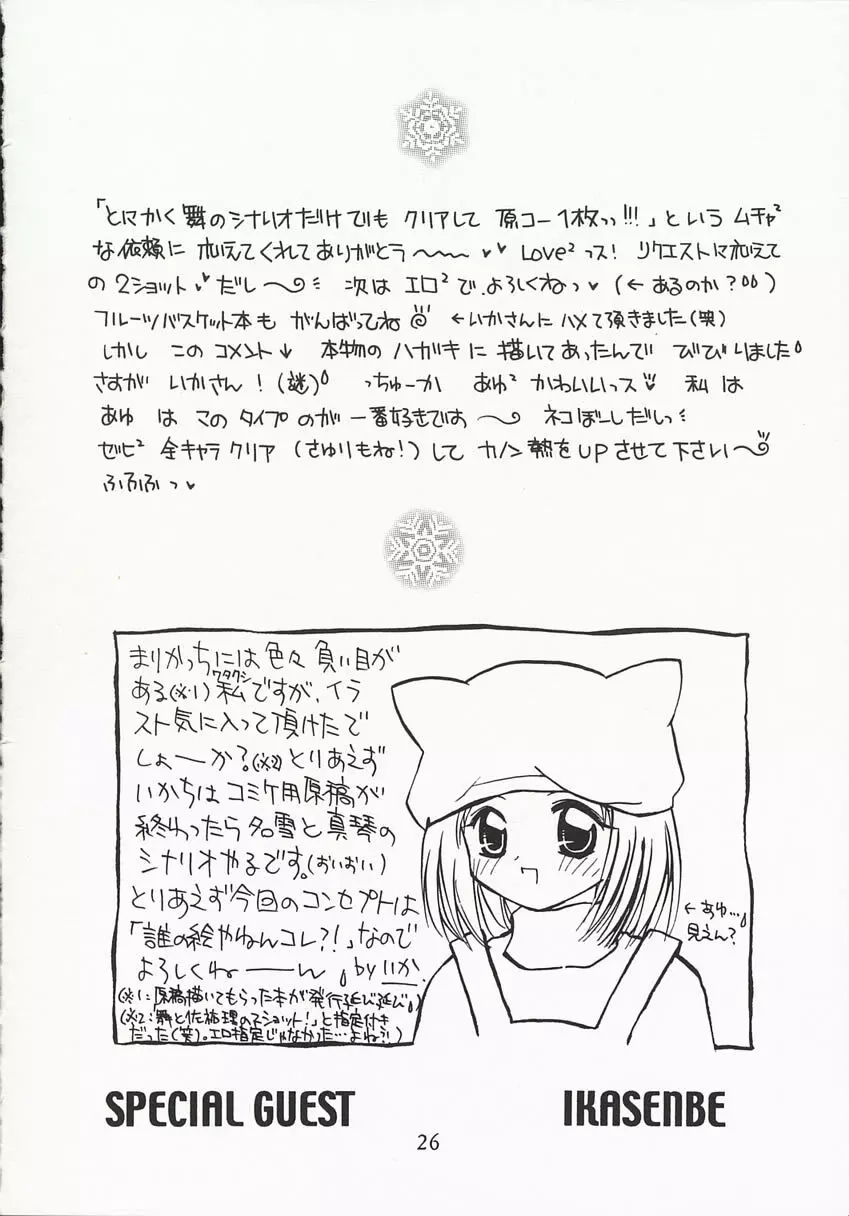 「とにかく舞のシナリオだけでも クリアして 原コー1枚っっ!!!」という ムチャ²
な依頼に 応えてくれてありがとう〜〜〜♥♥ Love²っス! リクエストに応えて
の2ショット♥だし〜 次は エロ²で、よろしくねっ♥ (←あるのか?)
フルーツバスケット本も がんばってね ←いかさんにハメて頂きました(笑)
しかし このコメント↓ 本物のハガキに描いてあったんで びびりました
さすが いかさん!(謎) っちゅーか あゆ² かわいいっス♥ 私は
あゆ は このタイプのが 一番好きです〜 ネコぼーしだしっ
ゼヒ² 全キャラクリア (さゆりもね!)して カノン熱をUPさせて下さい〜
ふふふっ♥
まりかっちには色々負い目が
ある(※1)私ワタクシですが、イラ
スト気に入って頂けたで
しょーか?(※2)とりあえず
いかちはコミケ用原稿が
終わったら名雪と真琴の
シナリオやるです。(おいおい)
とりあえず今回のコンセプトは
「誰の絵やねんコレ?!」なので
よろしくねーーん by いか
(※1:原稿描いてもらった本が発行延び延び)
(※2:舞と佐祐理の2ショット!」と指定付き
だった(笑)。エロ指定じゃなかった…よね?!)
←あゆ…
見えん?
SPECIAL GUEST IKASENBE
26